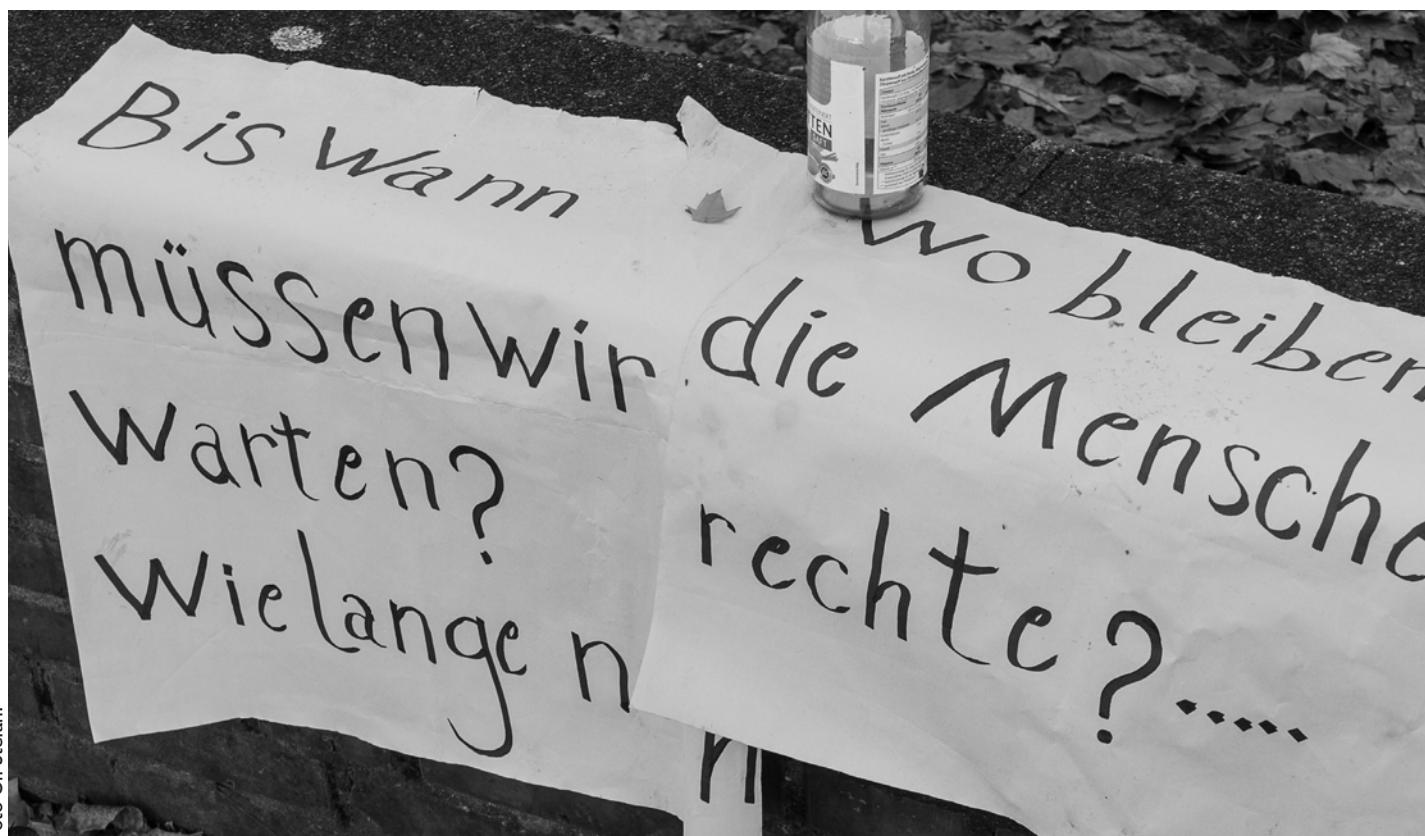 Bis wann
müssen wir
warten?
Wie lange n
n
wo bleiben
die Mensche
rechte?.....
TEN